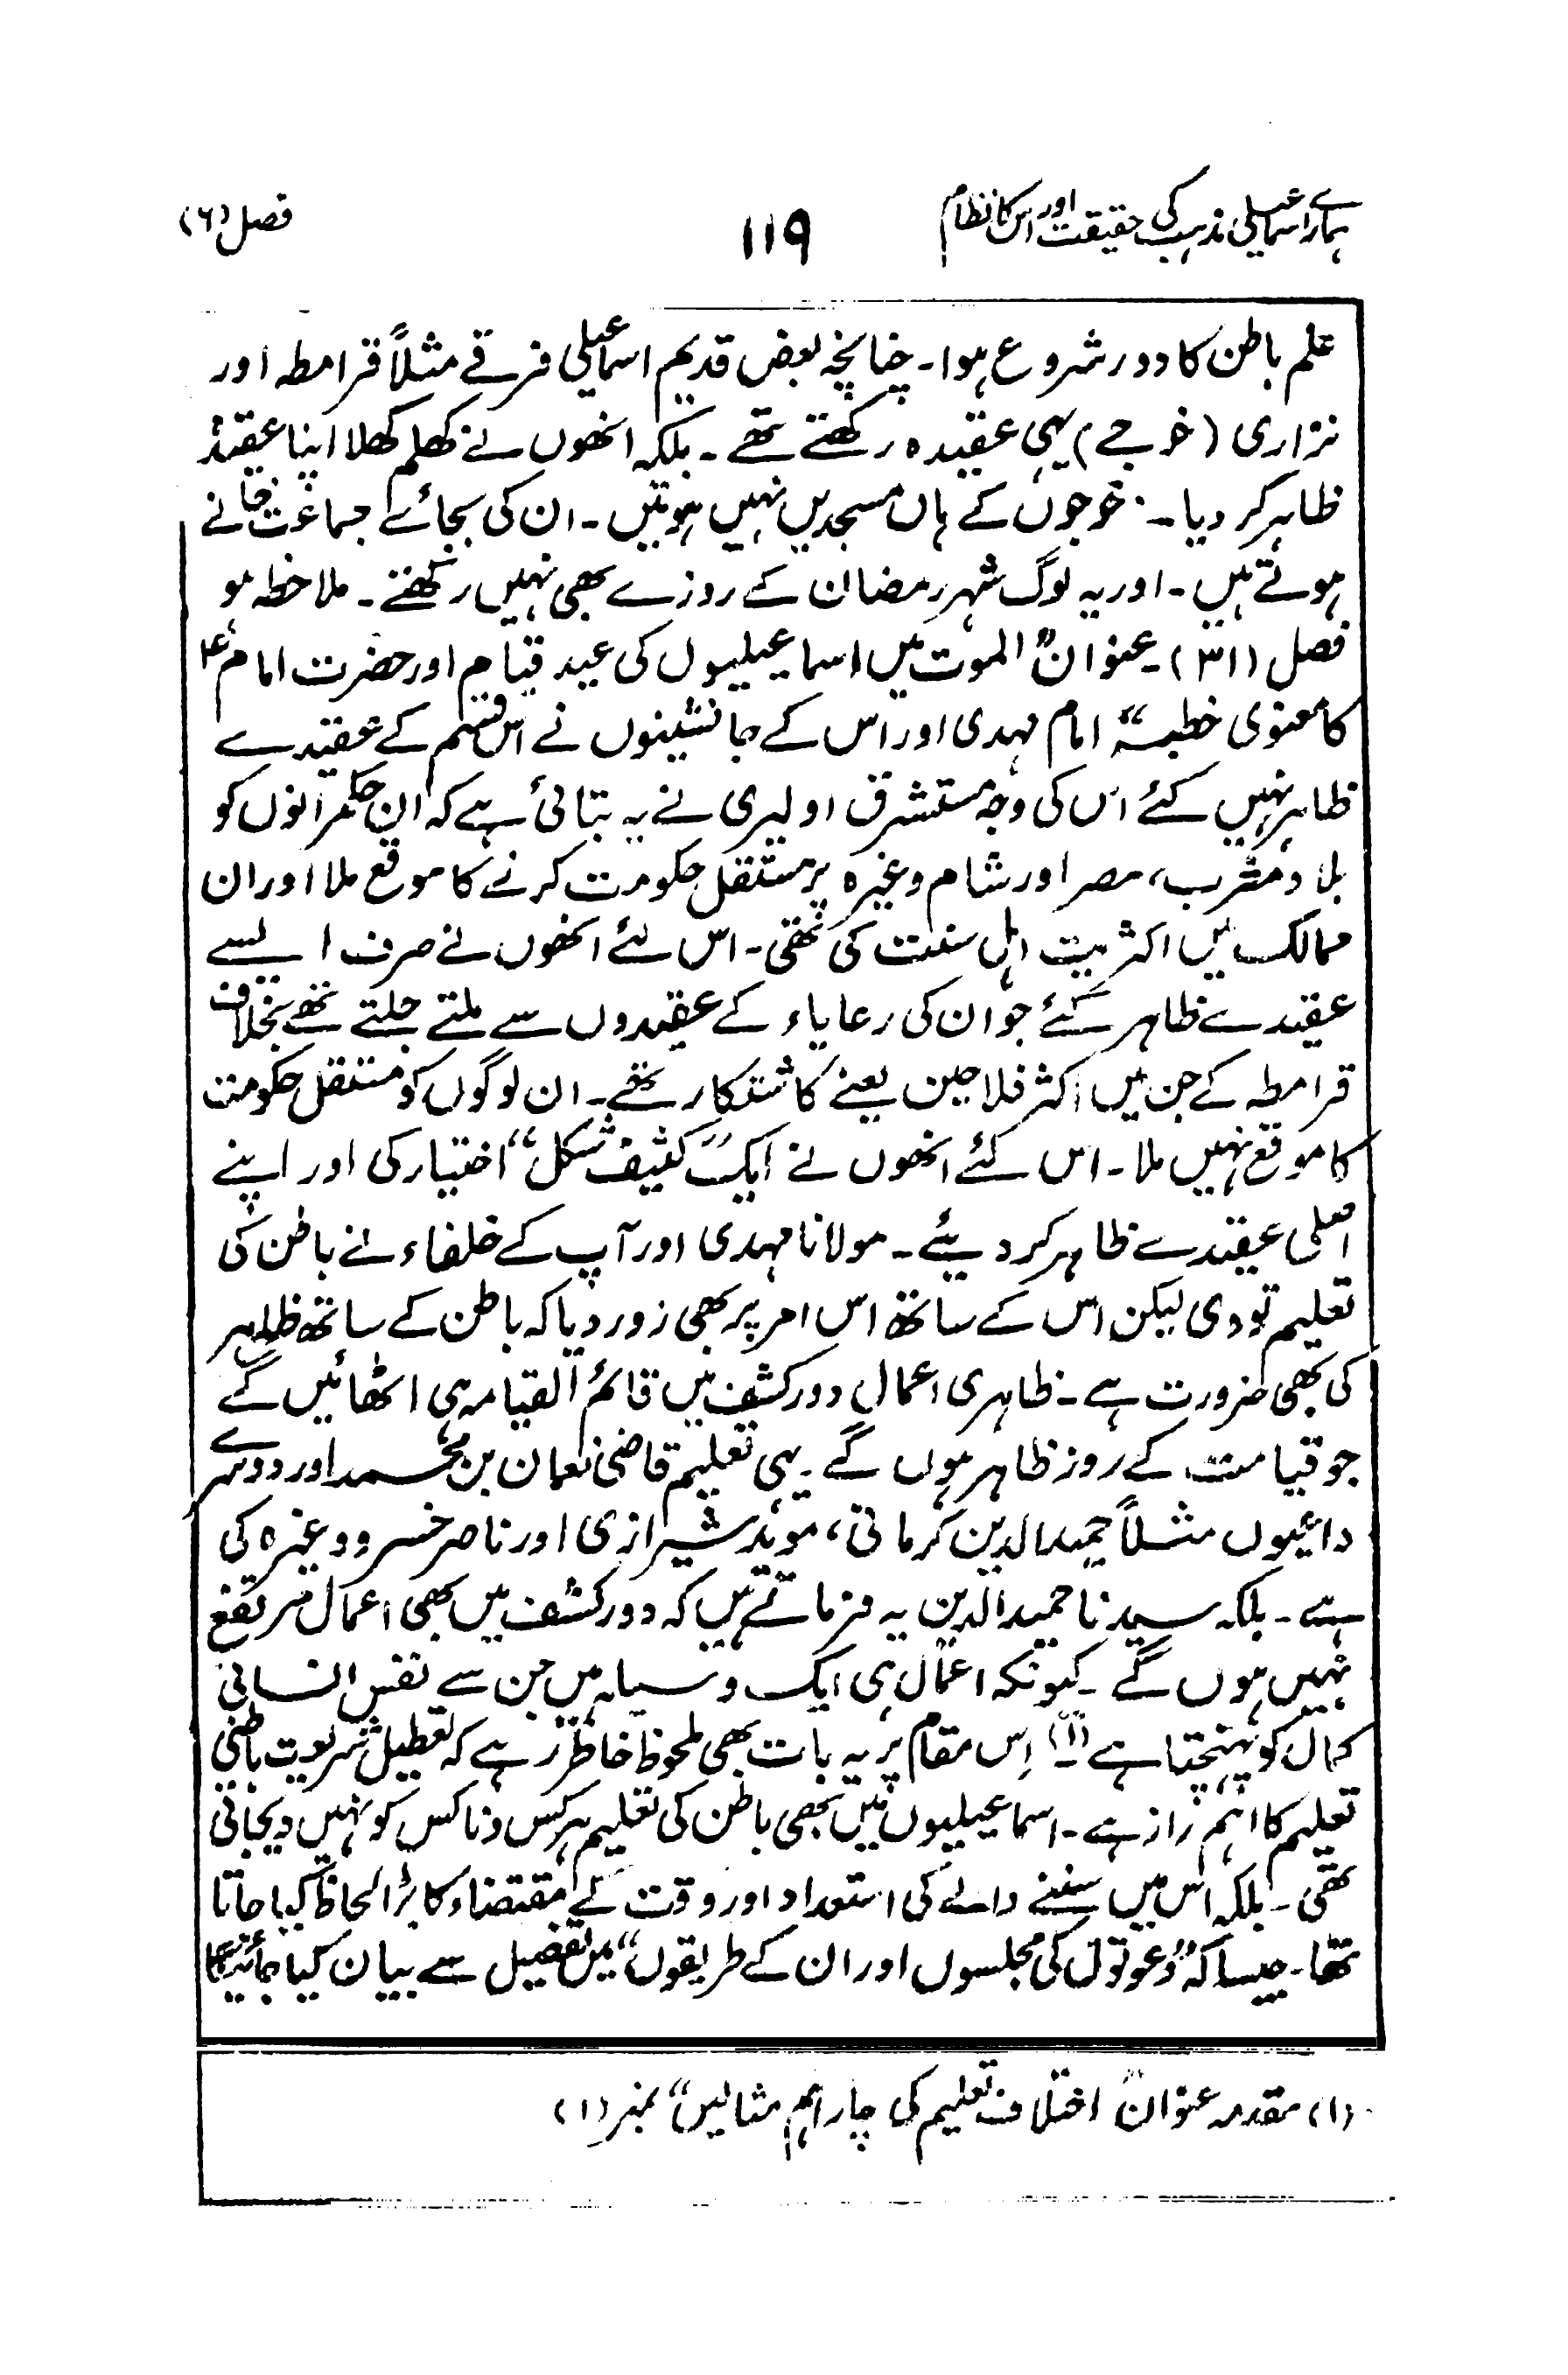 ہمارے اسماعیلی مذہب کی حقیقت اور اس کا نظام
۱۱۹
فصل (۶)
علم باطن کا دور شروع ہوا۔ چنانچہ بعض قدیم اسماعیلی فرقے مثلاً قرامطہ اور
نزاری (خوجے) یہی عقیدہ رکھتے تھے۔ بلکہ انھوں نے کھلم کھلا اپنا عقیدہ
ظاہر کر دیا۔ خوجوں کے ہاں مسجدیں نہیں ہوتیں۔ ان کی بجائے جماعت خانے
ہوتے ہیں۔ اور یہ لوگ شہر رمضان کے روزے بھی نہیں رکھتے۔ ملاحظہ ہو
فصل (۳۱)۔ عنوان "الموت میں اسماعیلیوں کی عید قیام اور حضرت امام ؑ
کا معنوی خطبہ" امام مہدی اور اس کے جانشینوں نے اس قسم کے عقیدے
ظاہر نہیں کئے اس کی وجہ مستشرق اولیری نے یہ بتائی ہے کہ ان حکمرانوں کو
بلاد مغرب، مصر اور شام وغیرہ پر مستقل حکومت کرنے کا موقع ملا اور ان
ممالک میں اکثریت اہل سنت کی تھی۔ اس لئے انھوں نے صرف ایسے
عقیدے ظاہر کئے جو ان کی رعایاء کے عقیدوں سے ملتے جلتے تھے بخلاف
قرامطہ کے جن میں اکثر فلاحین یعنے کاشتکار تھے۔ ان لوگوں کو مستقل حکومت
کا موقع نہیں ملا۔ اس لئے انھوں نے ایک "کثیف شکل" اختیار کی اور اپنے
اصلی عقیدے ظاہر کر دیئے۔ مولانا مہدی اور آپ کے خلفاء نے باطن کی
تعلیم تو دی لیکن اس کے ساتھ اس امر پر بھی زور دیا کہ باطن کے ساتھ ظاہر
کی بھی ضرورت ہے۔ ظاہری اعمال دور کشف میں قائم القیامہ ہی اٹھائیں گے
جو قیامت کے روز ظاہر ہوں گے۔ یہی تعلیم قاضی نعمان بن محمد اور دوسرے
داعیوں مثلاً حمید الدین کرمانی، موید شیرازی اور ناصر خسرو وغیرہ کی
ہے۔ بلکہ سیدنا حمید الدین یہ فرماتے ہیں کہ دور کشف میں بھی اعمال مرتفع
نہیں ہوں گے۔ کیونکہ اعمال ہی ایک وسیلہ ہیں جن سے نفس انسانی
کمال کو پہنچتا ہے (۱) اِس مقام پر یہ بات بھی ملحوظ خاطر رہے کہ تعطیل شریعت باطنی
تعلیم کا اہم راز ہے۔ اسماعیلیوں میں بھی باطن کی تعلیم ہر کس و ناکس کو نہیں دیجاتی
تھی۔ بلکہ اس میں سننے والے کی استعداد اور وقت کے مقتضاء کا بڑا لحاظ کیا جاتا
تھا۔ جیسا کہ "دعوتوں کی مجلسوں اور ان کے طریقوں" میں تفصیل سے بیان کیا جائیگا
(۱) مقدمہ عنوان "اختلاف تعلیم کی چار اہم مثالیں" نمبر (۱)